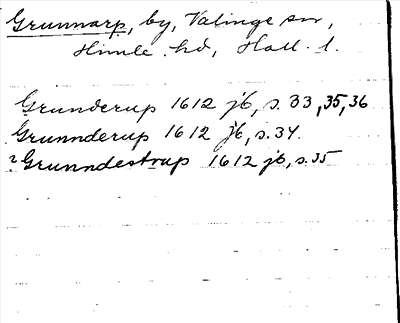 Grunnarp, by, Valinge sn,
Himle hd, Hall. l.
Grunderup 1612 jb, s. 33, 35, 36
Grunnderup 1612 jb, s. 34.
? Grunndestrup 1612 jb, s. 35